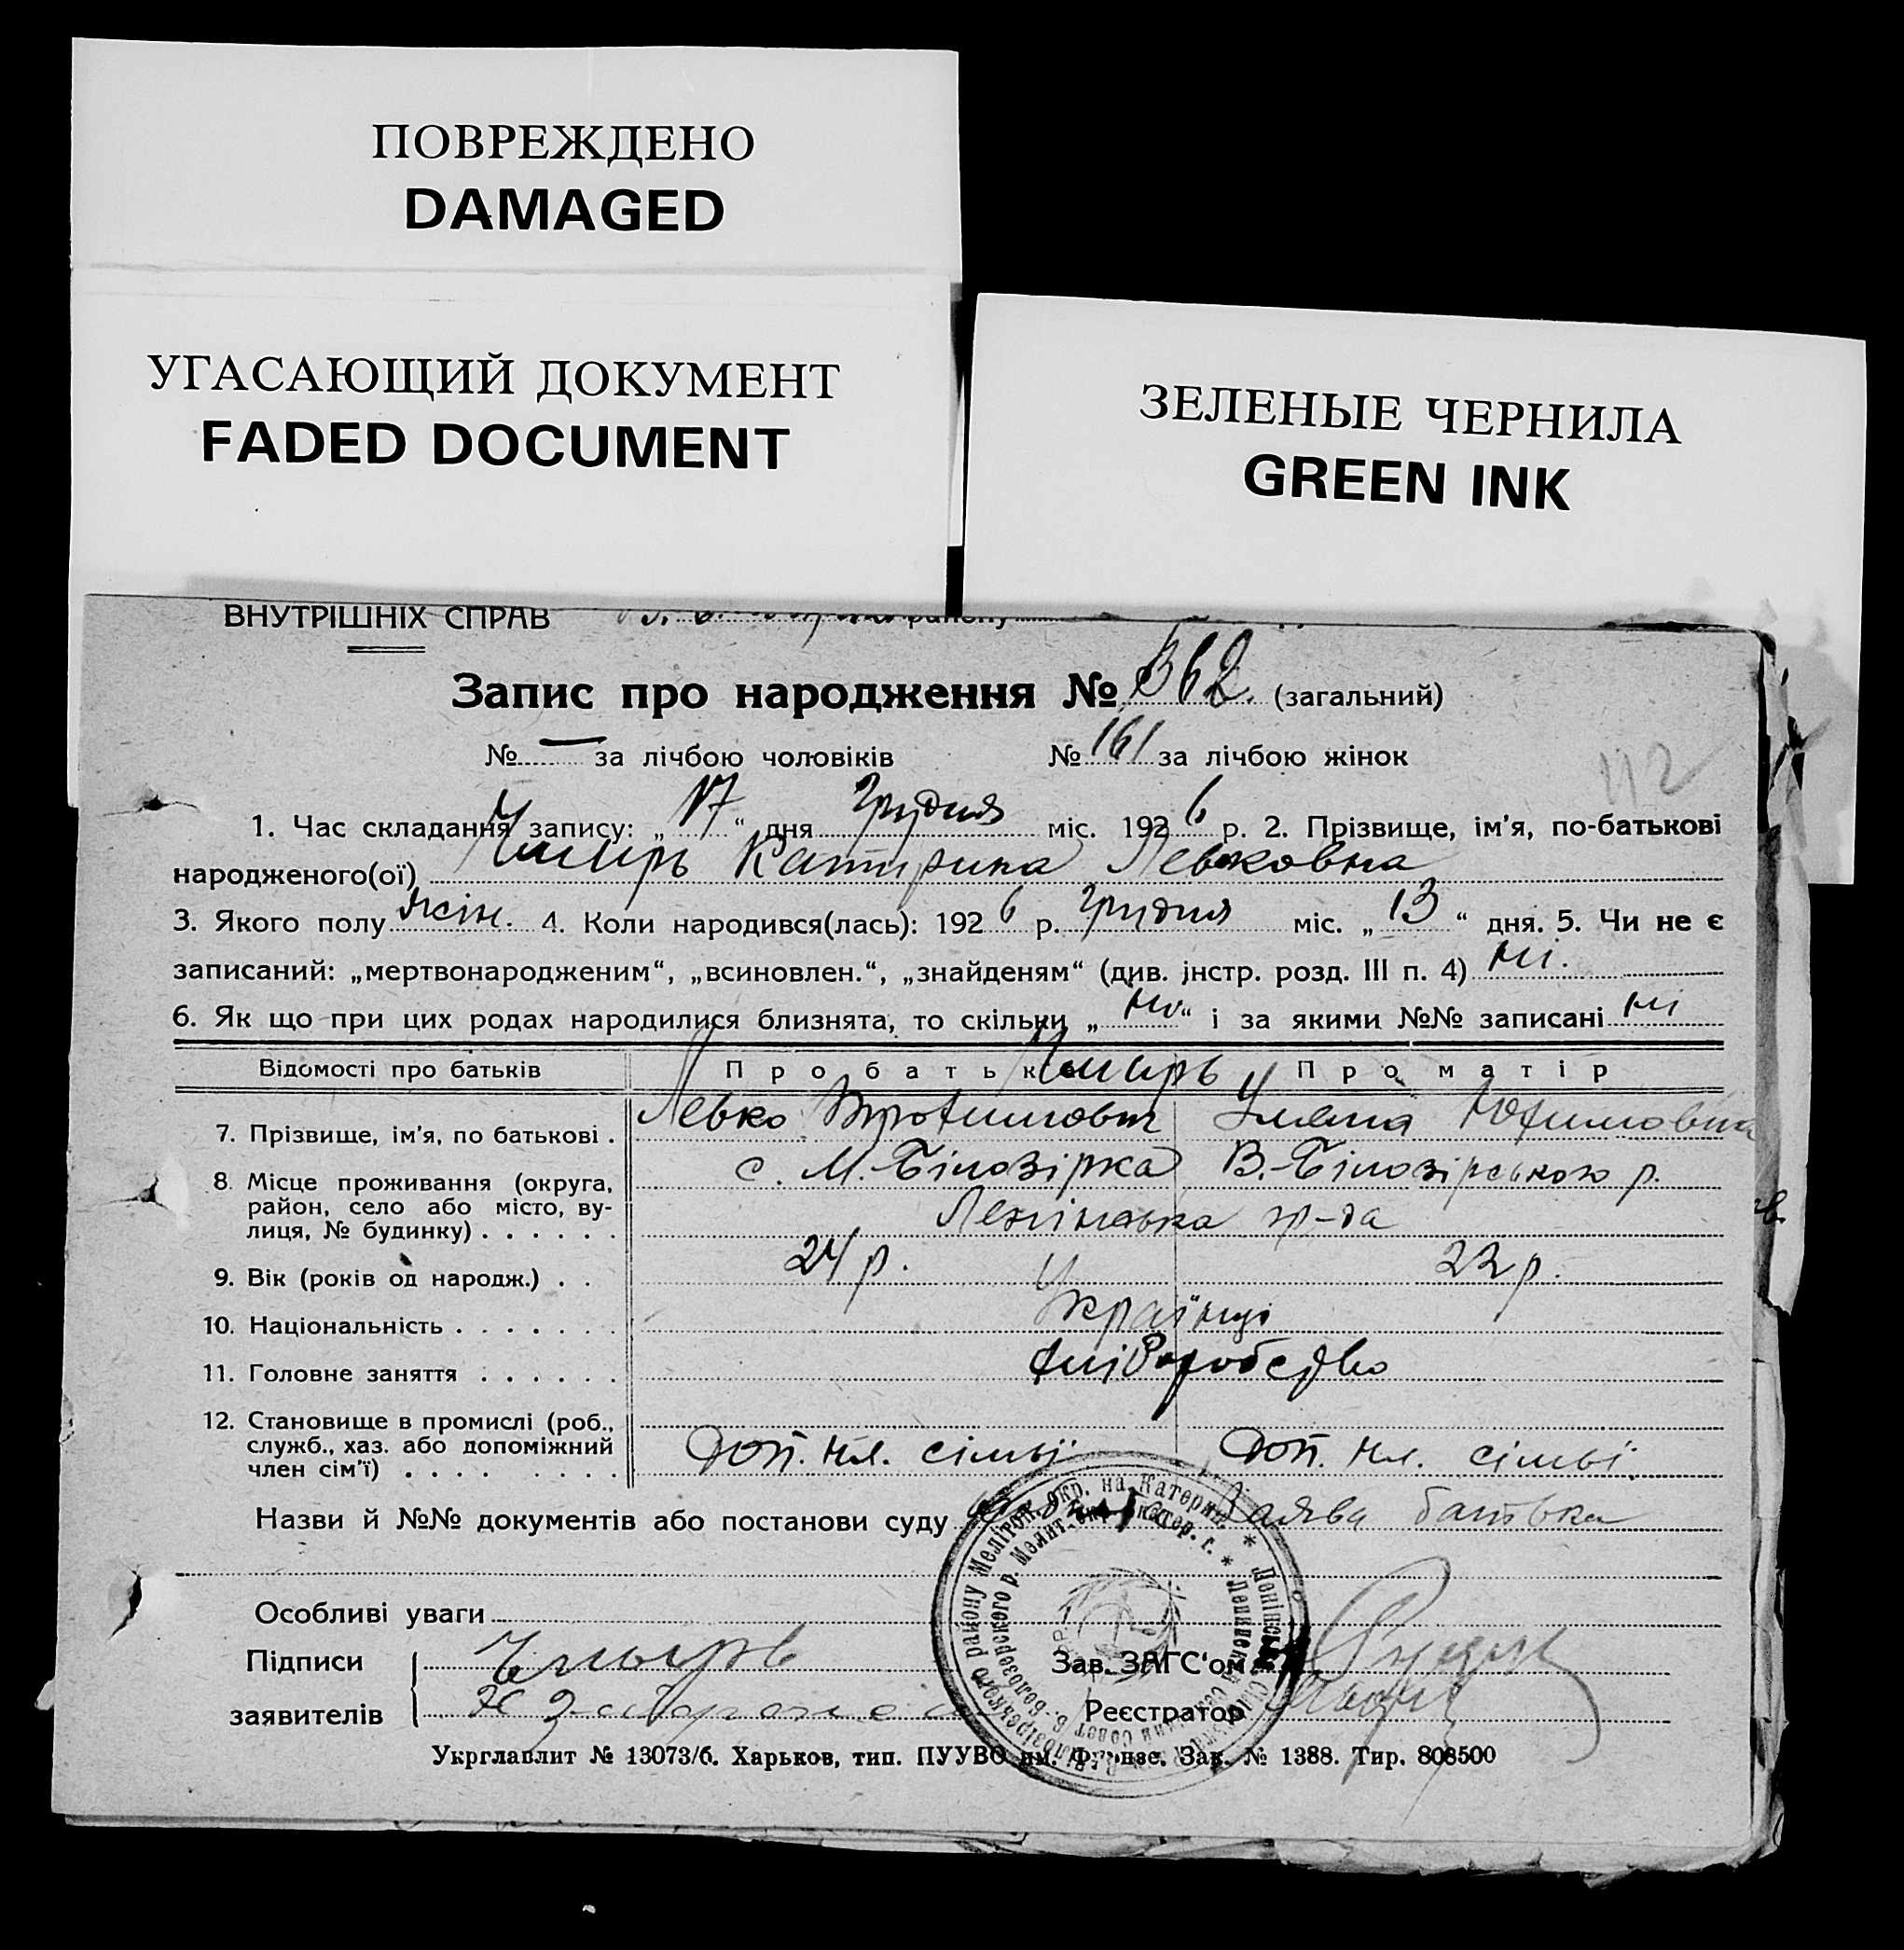 ПОВРЕЖДЕНО
DAMAGED
УГАСАЮЩИЙ ДОКУМЕНТ
FADED DOCUMENT
ЗЕЛЕНЫЕ ЧЕРНИЛА
GREEN INK
ВНУТРІШНІХ СПРАВ району
Запис про народження № 362. (загальний)
№ — за лічбою чоловіків № 161 за лічбою жінок
112
1. Час складання запису: „ 17 “ дня Грудня міс. 1926 р. 2. Прізвище, ім'я, по-батькові
народженого(ої) Чмирь Катирина Левковна
3. Якого полу жін. 4. Коли народився(лась): 1926 р. Грудня міс. „ 13 “ дня. 5. Чи не є
записаний: „мертвонародженим“, „всиновлен.“, „знайденям“ (див. інстр. розд. III п. 4) ні.
6. Як що при цих родах народилися близнята, то скільки „ ні “ і за якими №№ записані ні
Відомості про батьків Про батька Чмирь Про матір
7. Прізвище, ім'я, по батькові . Левко Трохимович Уляна Юхимовна
8. Місце проживання (округа, с. М.-Білозірка В.-Білозірського р.
район, село або місто, ву-
лиця, № будинку) . . . . . . Ленінська
9. Вік (років од народж.) . . 24 р. 22 р.
10. Національність . . . . . . . Українці
11. Головне заняття . . . . . . хліборобство
12. Становище в промислі (роб.,
служб., хаз. або допоміжний
член сім'ї) . . . . . . . . . Доп. чл. сімьї Доп. чл. сімьї.
Назви й №№ документів або постанови суду Заява батька
Особливі уваги
Підписи Чмырь Зав. ЗАГС'ом
заявителів Реєстратор
Укрглавлит № 13073/б. Харьков, тип. ПУУВО им. Фрунзе. Зак. № 1388. Тир. 808500